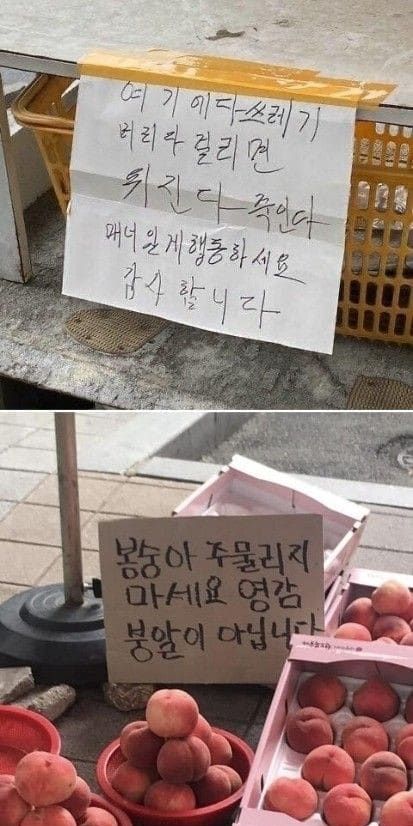 여기에다 쓰레기
버리다 걸리면
뒤진다 죽인다
매너있게행동하세요
감사합니다
봉숭아 주물리지
마세요 영감
붕알이 아닙니다